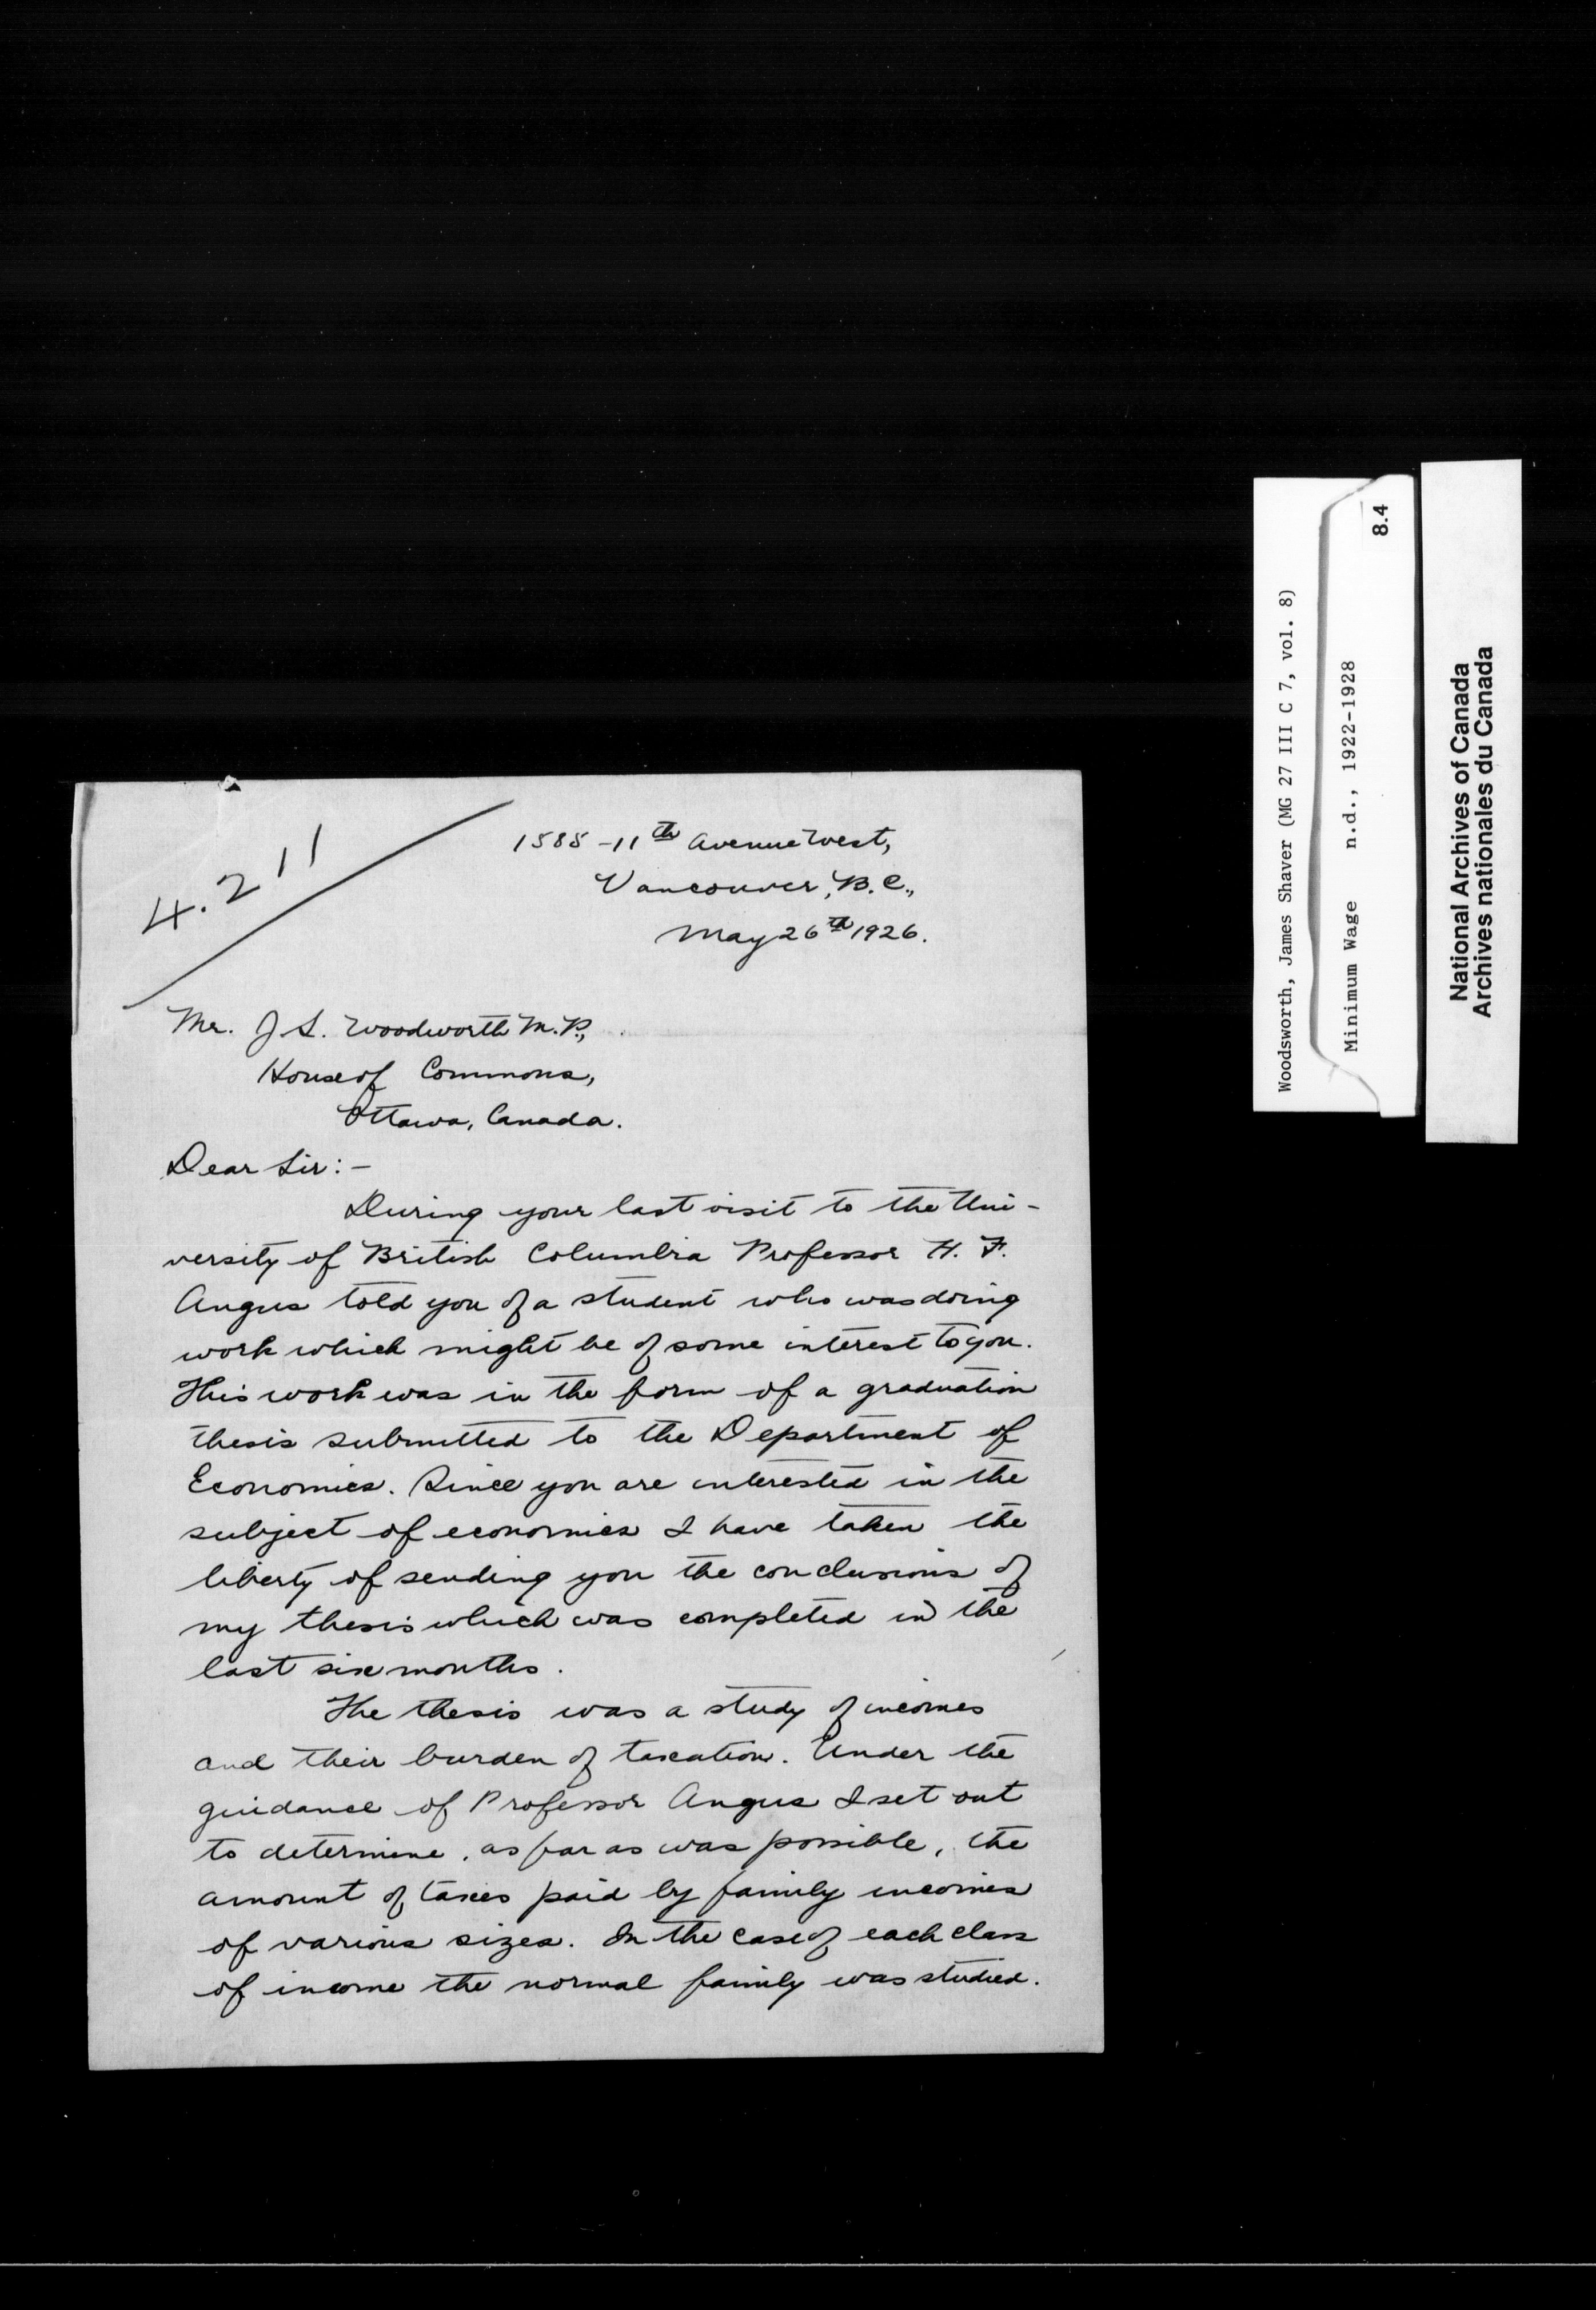 4.211
1585-11th Avenue West,
Vancouver, B.C.,
May 26th 1926.
Mr. J S. Woodworth M.P.,
House of Commons,
Ottawa, Canada.
Dear Sir:-
During your last visit to the Uni-
versity of British Columbia Professor H. F.
Angus told you of a student who was doing
work which might be of some interest to you.
This work was in the form of a graduation
thesis submitted to the Department of
Economics. Since you are interested in the
subject of economics I have taken the
liberty of sending you the conclusions of
my thesis which was completed in the
last six months.
The thesis was a study of incomes
and their burden of taxation. Under the
guidance of Professor Angus I set out
to determine, as far as was possible, the
amount of taxes paid by family incomes
of various sizes. In the case of each class
of income the normal family was studied.
Woodsworth, James Shaver (MG 27 III C 7, vol. 8)
Minimum Wage n.d., 1922-1928
8.4
National Archives of Canada
Archives nationales du Canada